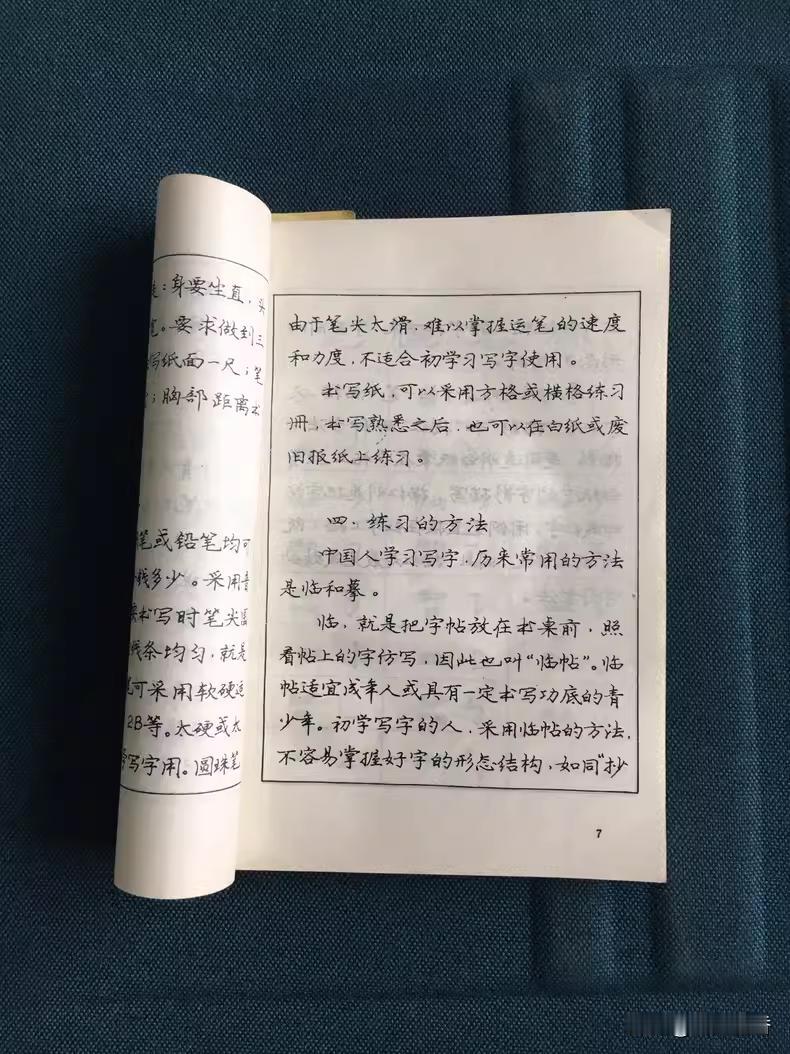 ：身要坐直，头
。要求做到三
写纸面一尺；笔
；胸部距离书
笔或铅笔均可
钱多少。采用
书写时笔尖
线条均匀，就是
可采用软硬适
2B等。太硬或太
写字用。圆珠笔
由于笔尖太滑，难以掌握运笔的速度
和力度，不适合初学习写字使用。
书写纸，可以采用方格或横格练习
册，书写熟悉之后，也可以在白纸或废
旧报纸上练习。
四、练习的方法
中国人学习写字，历来常用的方法
是临和摹。
临，就是把字帖放在书桌前，照
看帖上的字仿写，因此也叫“临帖”。临
帖适宜成年人或具有一定书写功底的青
少年。初学写字的人，采用临帖的方法，
不容易掌握好字的形态结构，如同“抄
7